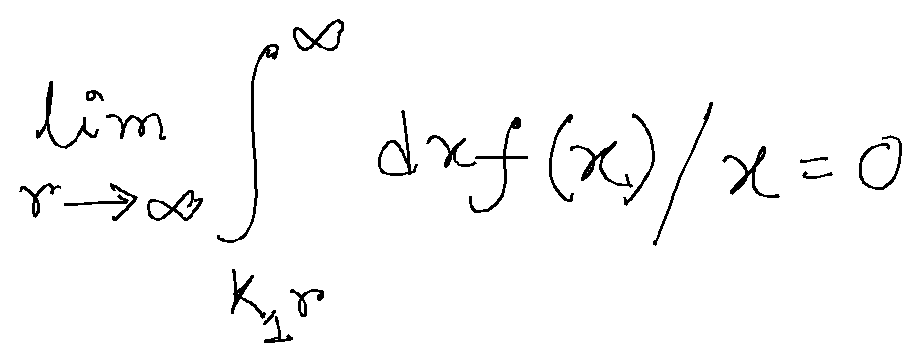 \lim_{r \to \infty} \int_{K_1 r}^{\infty} dx f(x) / x = 0